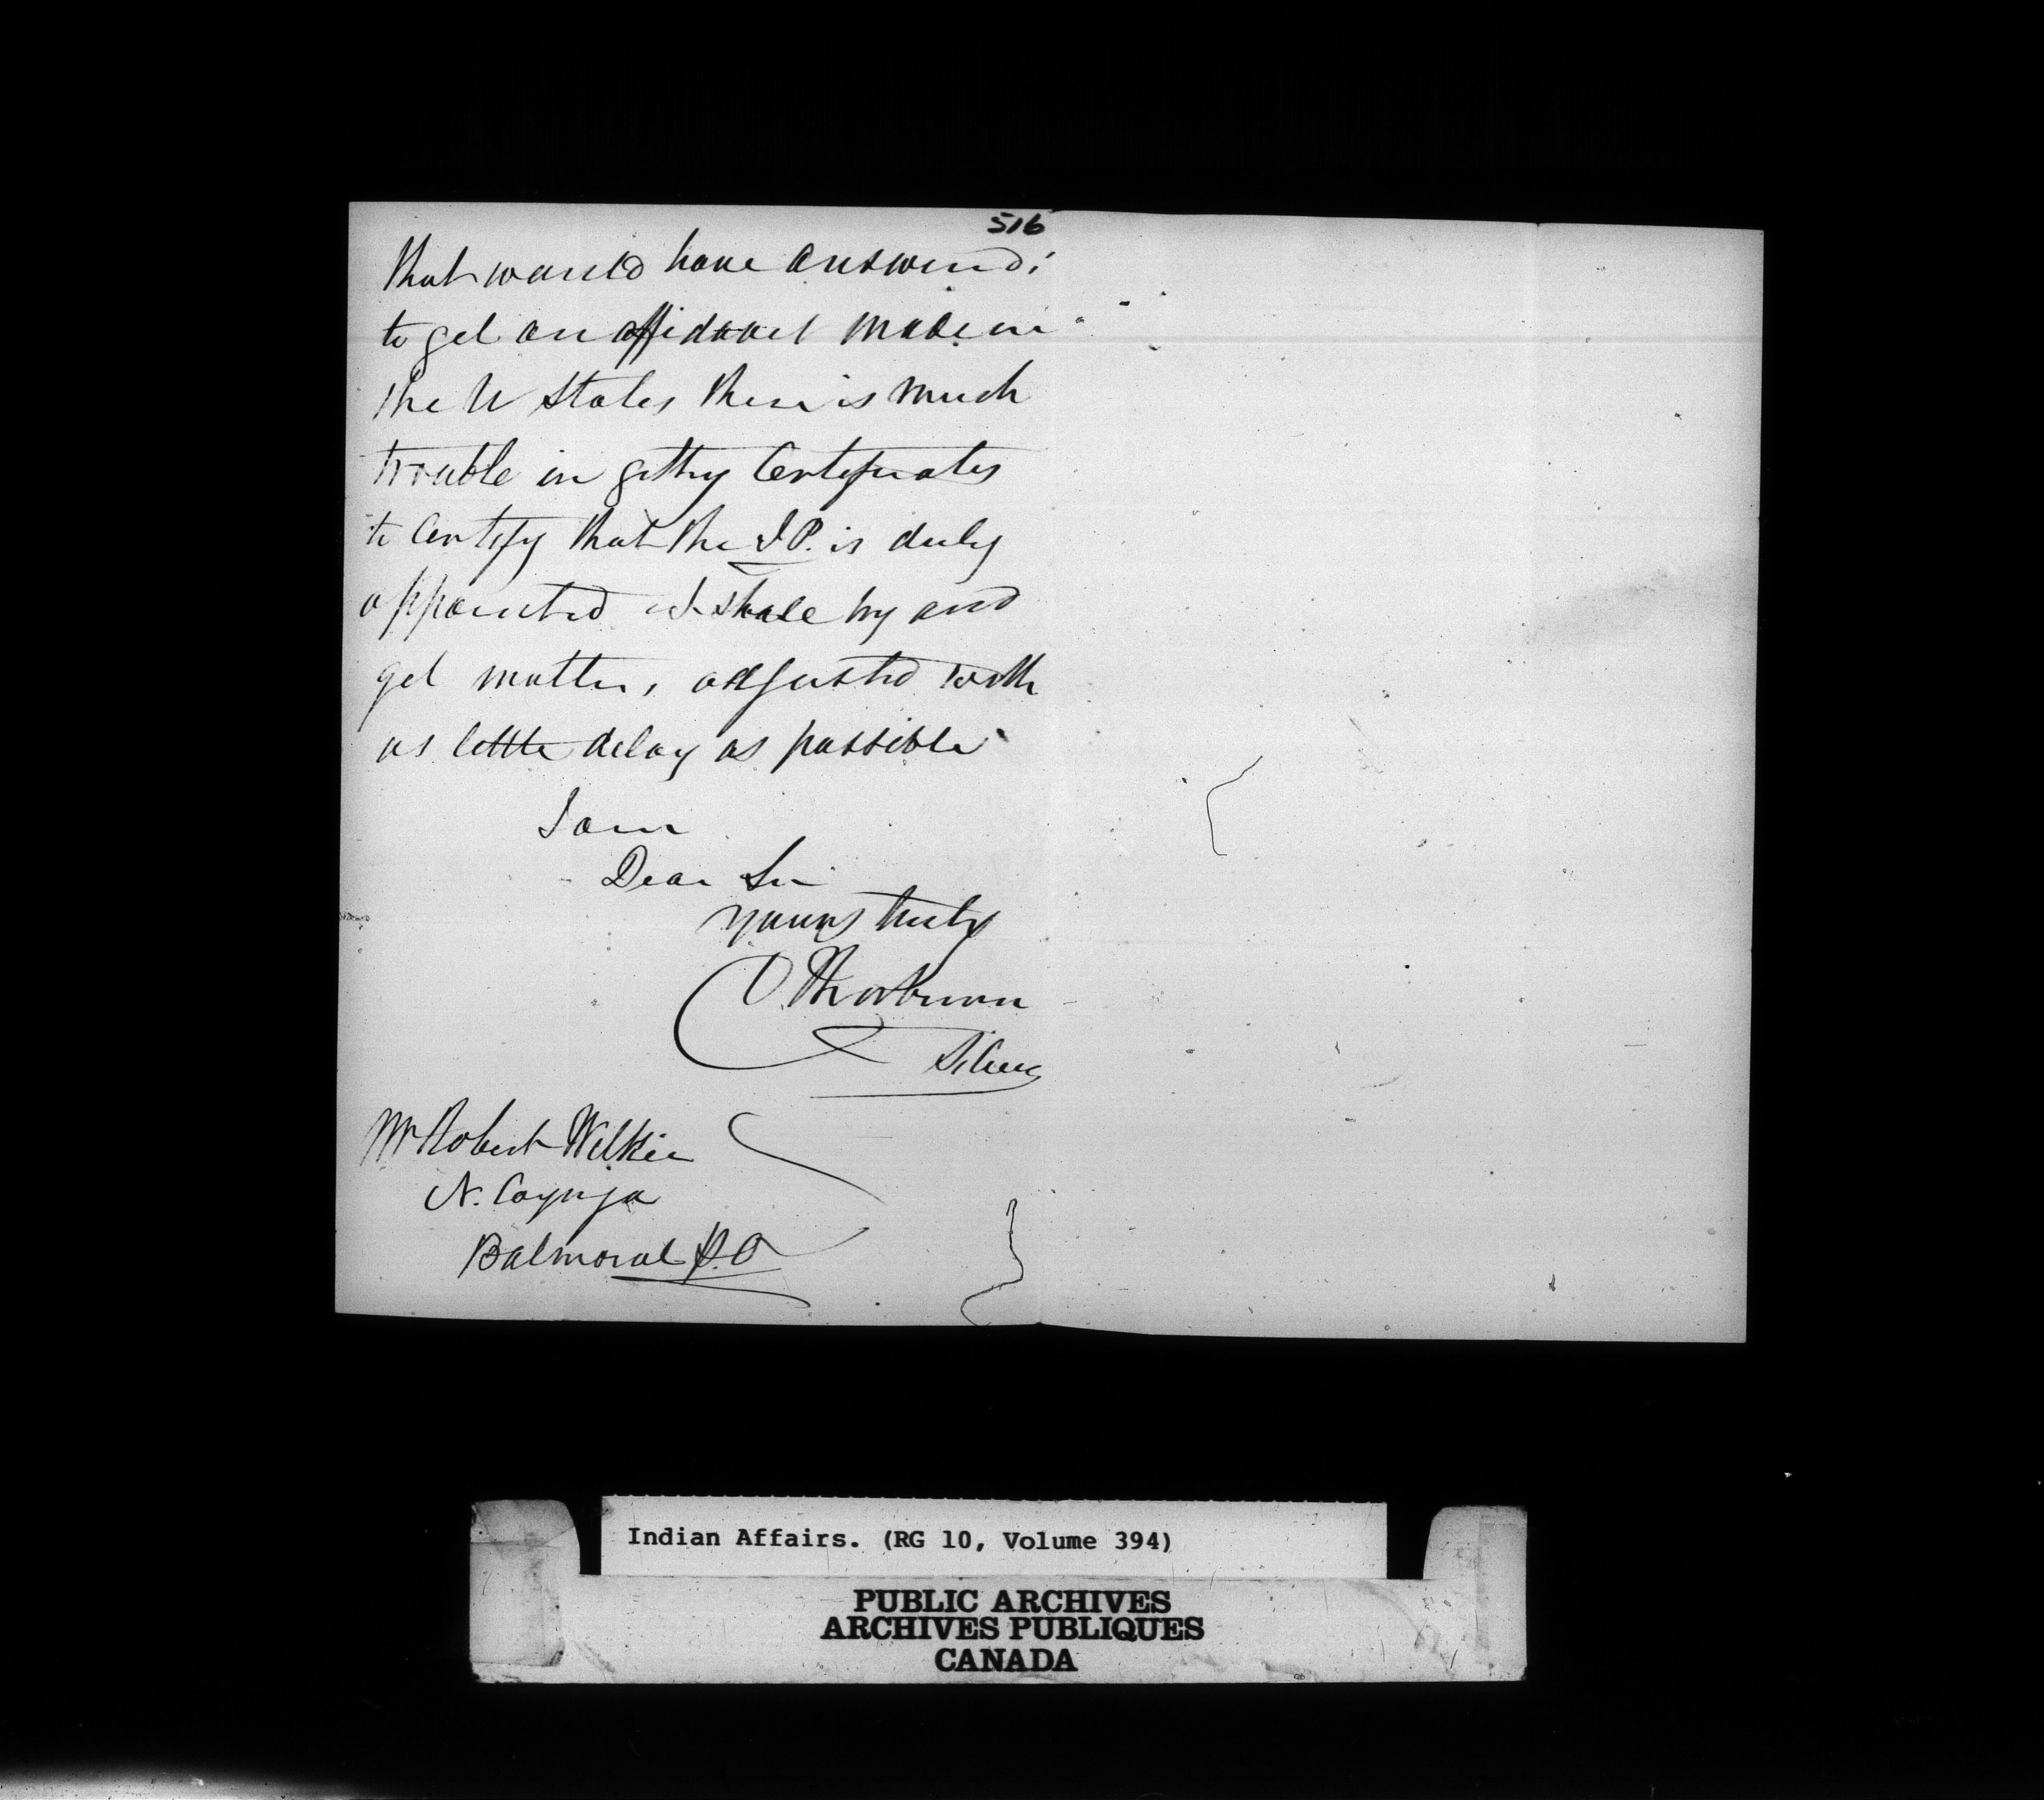 516
that would have answered;
to get an affidavit made in
the U States there is much
trouble in getting Certificates
to Certify that the J P. is duly
appointed I shall try and
get matters adjusted with
as little delay as possible
I am
Dear Sir
Yours truly
D. Thorburn
Mr Robert Wilkie
N. Cayuga
Balmoral P.O
Indian Affairs. (RG 10, Volume 394)
PUBLIC ARCHIVES
ARCHIVES PUBLIQUES
CANADA